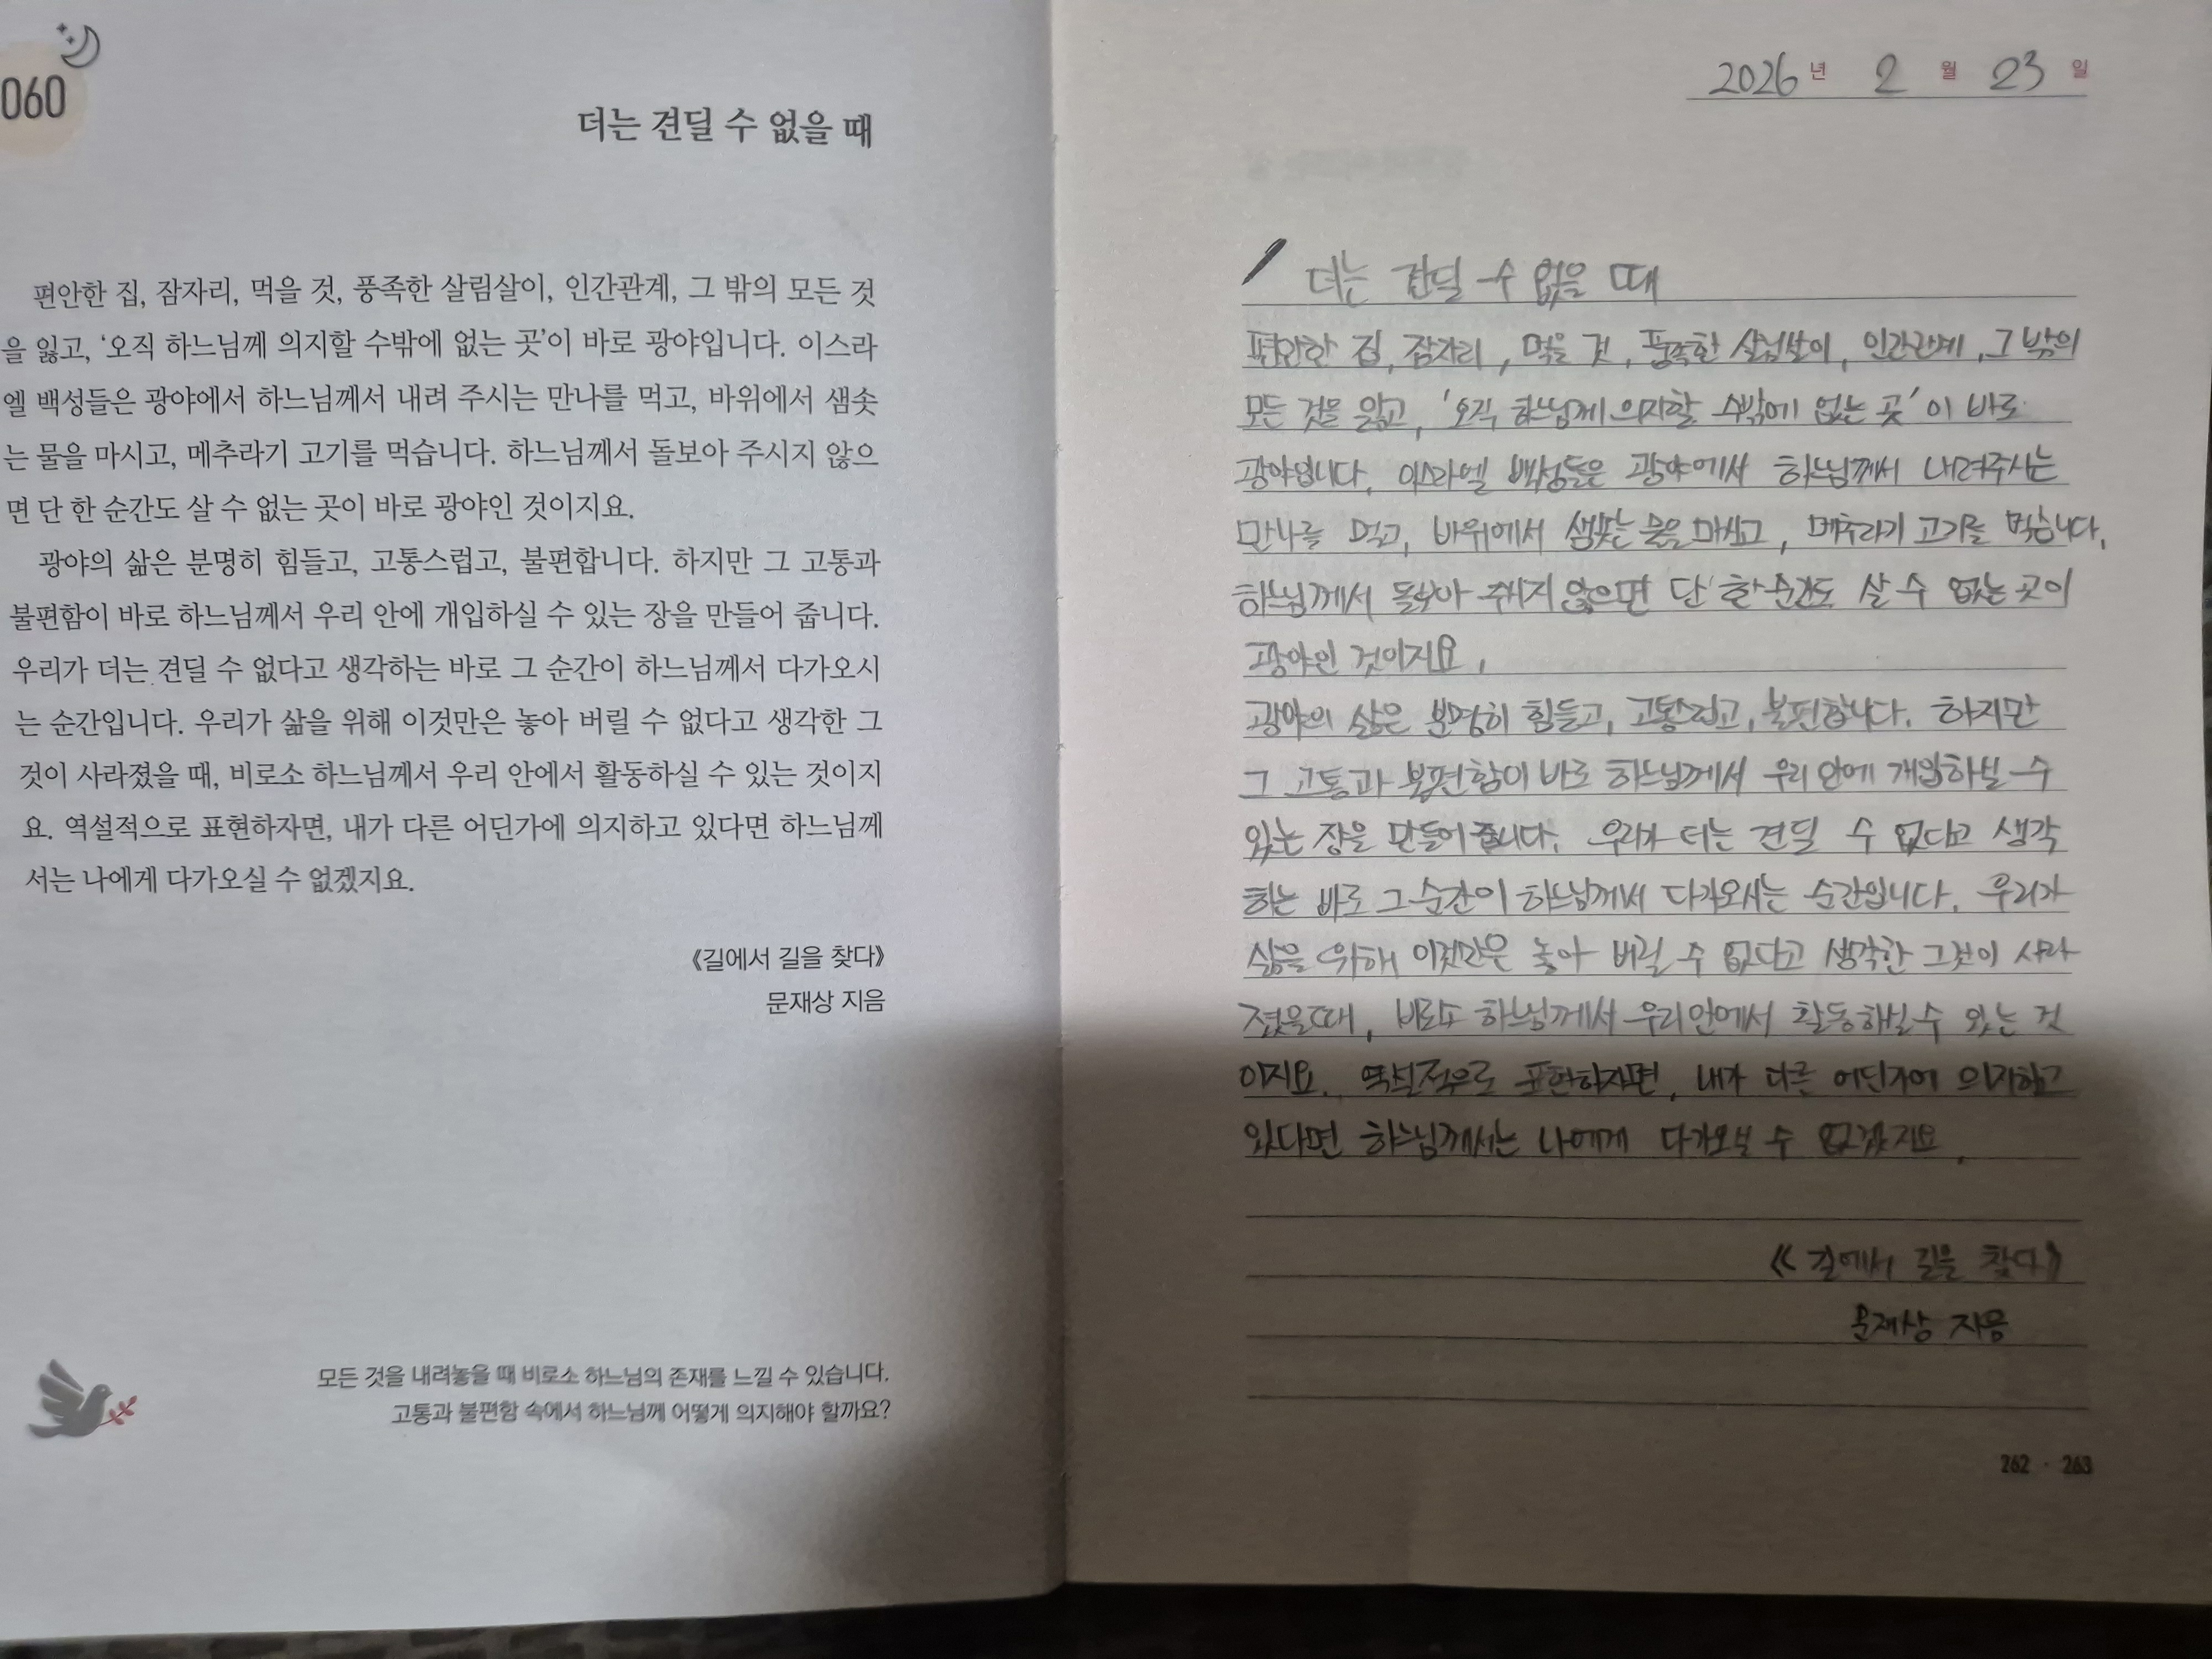 060
더는 견딜 수 없을 때
편안한 집, 잠자리, 먹을 것, 풍족한 살림살이, 인간관계, 그 밖의 모든 것
을 잃고, '오직 하느님께 의지할 수밖에 없는 곳'이 바로 광야입니다. 이스라
엘 백성들은 광야에서 하느님께서 내려 주시는 만나를 먹고, 바위에서 샘솟
는 물을 마시고, 메추라기 고기를 먹습니다. 하느님께서 돌보아 주시지 않으
면 단 한 순간도 살 수 없는 곳이 바로 광야인 것이지요.
광야의 삶은 분명히 힘들고, 고통스럽고, 불편합니다. 하지만 그 고통과
불편함이 바로 하느님께서 우리 안에 개입하실 수 있는 장을 만들어 줍니다.
우리가 더는 견딜 수 없다고 생각하는 바로 그 순간이 하느님께서 다가오시
는 순간입니다. 우리가 삶을 위해 이것만은 놓아 버릴 수 없다고 생각한 그
것이 사라졌을 때, 비로소 하느님께서 우리 안에서 활동하실 수 있는 것이지
요. 역설적으로 표현하자면, 내가 다른 어딘가에 의지하고 있다면 하느님께
서는 나에게 다가오실 수 없겠지요.
《길에서 길을 찾다》
문재상 지음
모든 것을 내려놓을 때 비로소 하느님의 존재를 느낄 수 있습니다.
고통과 불편함 속에서 하느님께 어떻게 의지해야 할까요?
2026년 2월 23일
더는 견딜 수 없을 때
편안한 집, 잠자리, 먹을 것, 풍족한 살림살이, 인간관계, 그 밖의
모든 것을 잃고, '오직 하느님께 의지할 수밖에 없는 곳'이 바로
광야입니다. 이스라엘 백성들은 광야에서 하느님께서 내려주시는
만나를 먹고, 바위에서 샘솟는 물을 마시고, 메추라기 고기를 먹습니다.
하느님께서 돌보아 주시지 않으면 단 한 순간도 살 수 없는 곳이
광야인 것이지요.
광야의 삶은 분명히 힘들고, 고통스럽고, 불편합니다. 하지만
그 고통과 불편함이 바로 하느님께서 우리 안에 개입하실 수
있는 장을 만들어 줍니다. 우리가 더는 견딜 수 없다고 생각
하는 바로 그 순간이 하느님께서 다가오시는 순간입니다. 우리가
삶을 위해 이것만은 놓아 버릴 수 없다고 생각한 그것이 사라
졌을때, 비로소 하느님께서 우리 안에서 활동하실 수 있는 것
이지요. 역설적으로 표현하자면, 내가 다른 어딘가에 의지하고
있다면 하느님께서는 나에게 다가오실 수 없겠지요.
《길에서 길을 찾다》
문재상 지음
262 · 263